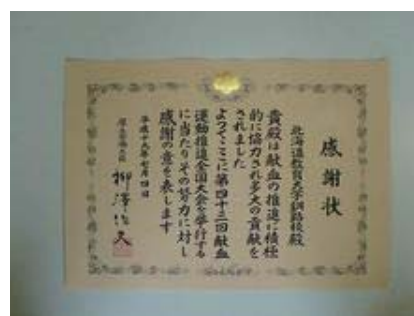 感謝状
北海道教育大学釧路校殿
貴殿は献血の推進に積極
的に協力され多大の貢献を
されました
よつてここに第四十三回献血
運動推進全国大会を挙行する
に当たりその努力に対し
感謝の意を表します
平成十九年七月四日
厚生労働大臣
柳澤伯夫